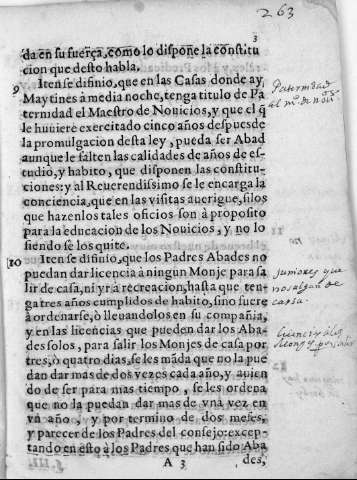 263
3
da en su fuerça, como lo dispone la constitu
cion que desto habla.
9 Iten se difinio, que en las Casas donde ay
Maytines à media noche, tenga titulo de Pa
ternidad el Maestro de Nouicios, y que el q̃
le huuiere exercitado cinco años despues de
la promulgacion desta ley, pueda ser Abad
aunque le falten las calidades de años de es-
tudio, y habito, que disponen las constitu-
ciones: y al Reuerendissimo se le encarga la
conciencia, que en las visitas auerigue, si los
que hazen los tales oficios son à proposito
para la educacion de los Nouicios, y no lo
siendo se los quite.
10 Iten se difinio, que los Padres Abades no
puedan dar licencia à ningun Monje para sa
lir de casa, ni yr à recreacion, hasta que ten-
ga tres años cumplidos de habito, sino fuere
à ordenarse, ò lleuandolos en su compañia,
y en las licencias que pueden dar los Aba-
des solos, para salir los Monjes de casa por
tres, ò quatro dias, se les mãda que no la pue
dan dar mas de dos vezes cada año, y auien
do de ser para mas tiempo, se les ordena
que no la puedan dar mas de vna vez en
vn año, y por termino de dos meses,
y parecer de los Padres del consejo: excep-
tando en esto à los Padres que han sido Aba
A 3
des,
Paternidad
al m.º de nou.s
Juniores que
no salgan de
casa